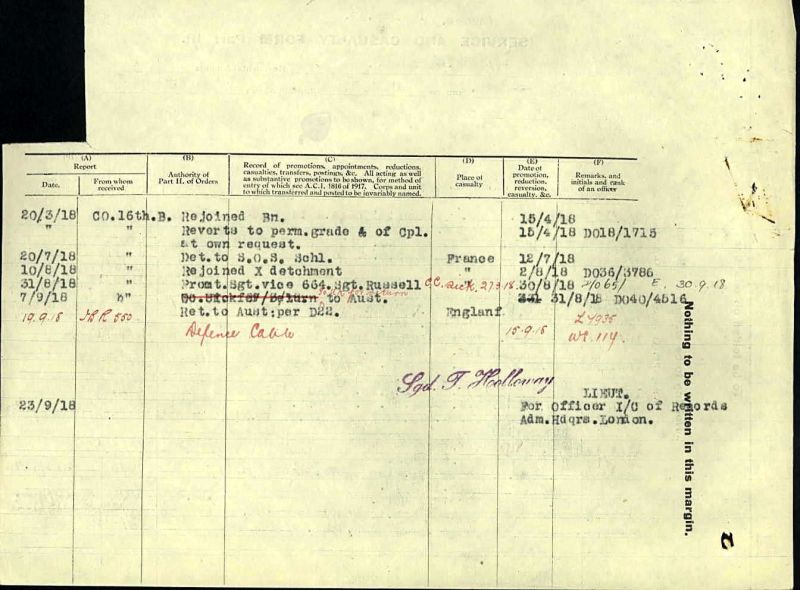 (A)
Report
Date.
From whom
received
(B)
Authority of
Part II. of Orders
(C)
Record of promotions, appointments, reductions,
casualties, transfers, postings, &c. All acting as well
as substantive promotions to be shown, for method of
entry of which see A.C.I. 1816 of 1917. Corps and unit
to which transferred and posted to be invariably named.
(D)
Place of
casualty
(E)
Date of
promotion,
reduction,
reversion,
casualty, &c.
(F)
Remarks, and
initials and rank
of an officer
20/3/18 CO.16th.B. Rejoined Bn. 15/4/18
" " Reverts to perm.grade & of Cpl. 15/4/18 DO18/1715
at own request.
20/7/18 " Det.to S.O.S. Schl. France 12/7/18
10/8/18 " Rejoined X detchment " 2/8/18 DO36/3786
31/8/18 " Promt.Sgt.vice 664.Sgt.Russell C.C. sick, 27.3.18 30/8/18 E. 30.9.18
7/9/18 " to Aust. 31/8/18 DO40/4516
19.9.18 Ret.to Aust:per D22. Englanf
Defence Cable 15.9.18 wt. 114.
Sgd. T. Holloway
LIEUT.
23/9/18 For Officer I/C of Records
Adm.Hdqrs.London.
Nothing to be written in this margin.